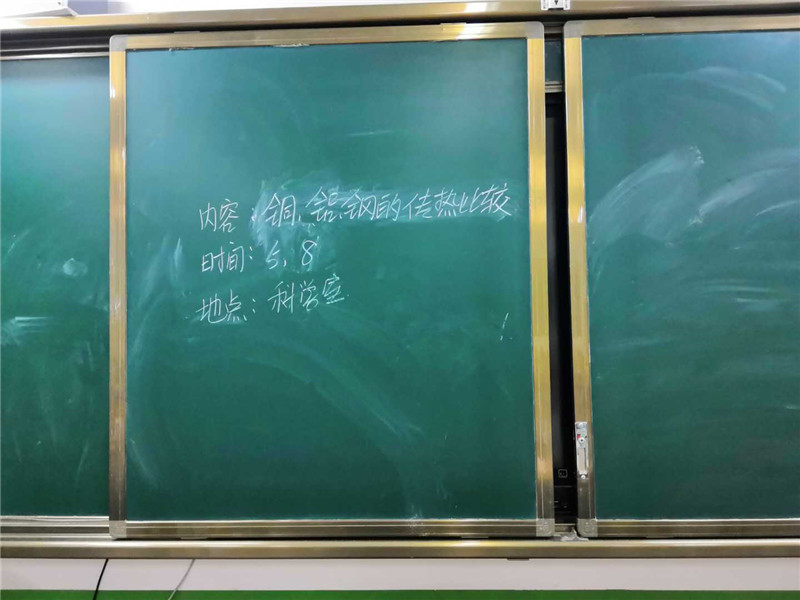 内容：铜、铝、钢的传热比较
时间：5、8
地点：科学室